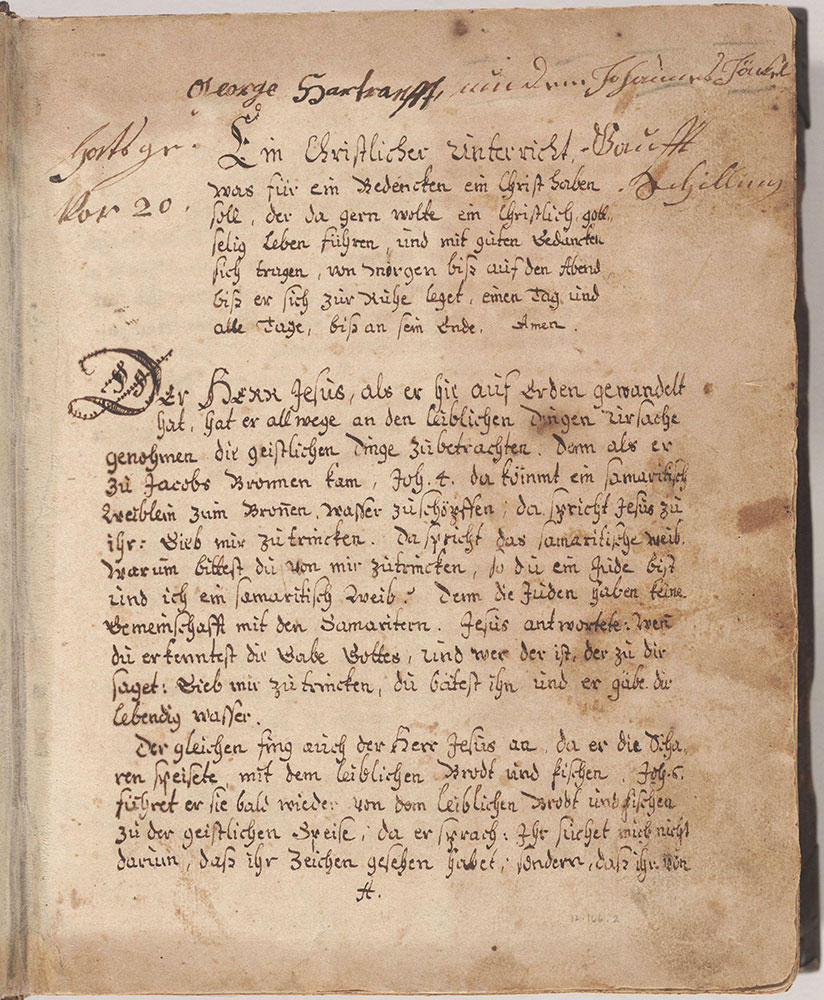 George Hartranfft, nun dem Johannes Jäckel
hats ge.
Kaufft
Vor 20.
Schilling
Ein Christlicher Unterricht,
was für ein Bedencken ein Christ haben
soll, der da gern wolte ein Christlich, gott,,
selig Leben führen, und mit guten Gedancken
sich tragen, von morgen biß auf den Abend
biß er sich zur Ruhe leget, einen Tag und
alle Tage, biß an sein Ende. Amen.
Der HErr Jesus, als er hie auf Erden gewandelt
hat, hat er allwege an den leiblichen dingen Ursache
genohmen die geistlichen dinge zu betrachten. Denn als er
zu Jacobs Bronnen kam, Joh. 4. da kömmt ein samaritisch
Weiblein zum Broñen, wasser zu schöpffen; da spricht Jesus zu
ihr: Gieb mir zu trincken. Da spricht das samaritische weib.
Warum bittest du von mir zu trincken, so du ein Jude bist
und ich ein samaritisch Weib? Denn die Juden haben keine
Gemeinschafft mit den Samaritern. Jesus antwortete: Weñ
du erkenntest die Gabe Gottes, und wer der ist, der zu dir
saget: Gieb mir zu trincken, du bätest ihn und er gäbe dir
lebendig wasser.
Der gleichen fing auch der Herr Jesus an, da er die Scha,
ren speisete, mit dem leiblichen Brodt und fischen, Joh. 6.
führet er sie bald wieder von dem leiblichen Brodt und fischen
zu der geistlichen Speise, da er sprach: Ihr suchet mich nicht
darum, daß ihr Zeichen gesehen habet, sondern, daß ihr von
A.
12.166.2